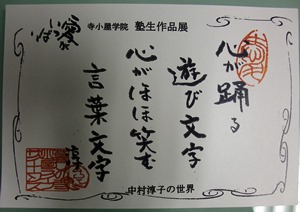 寺小屋学院 塾生作品展
心が踊る
遊び文字
心がほほ笑む
言葉文字
中村淳子の世界